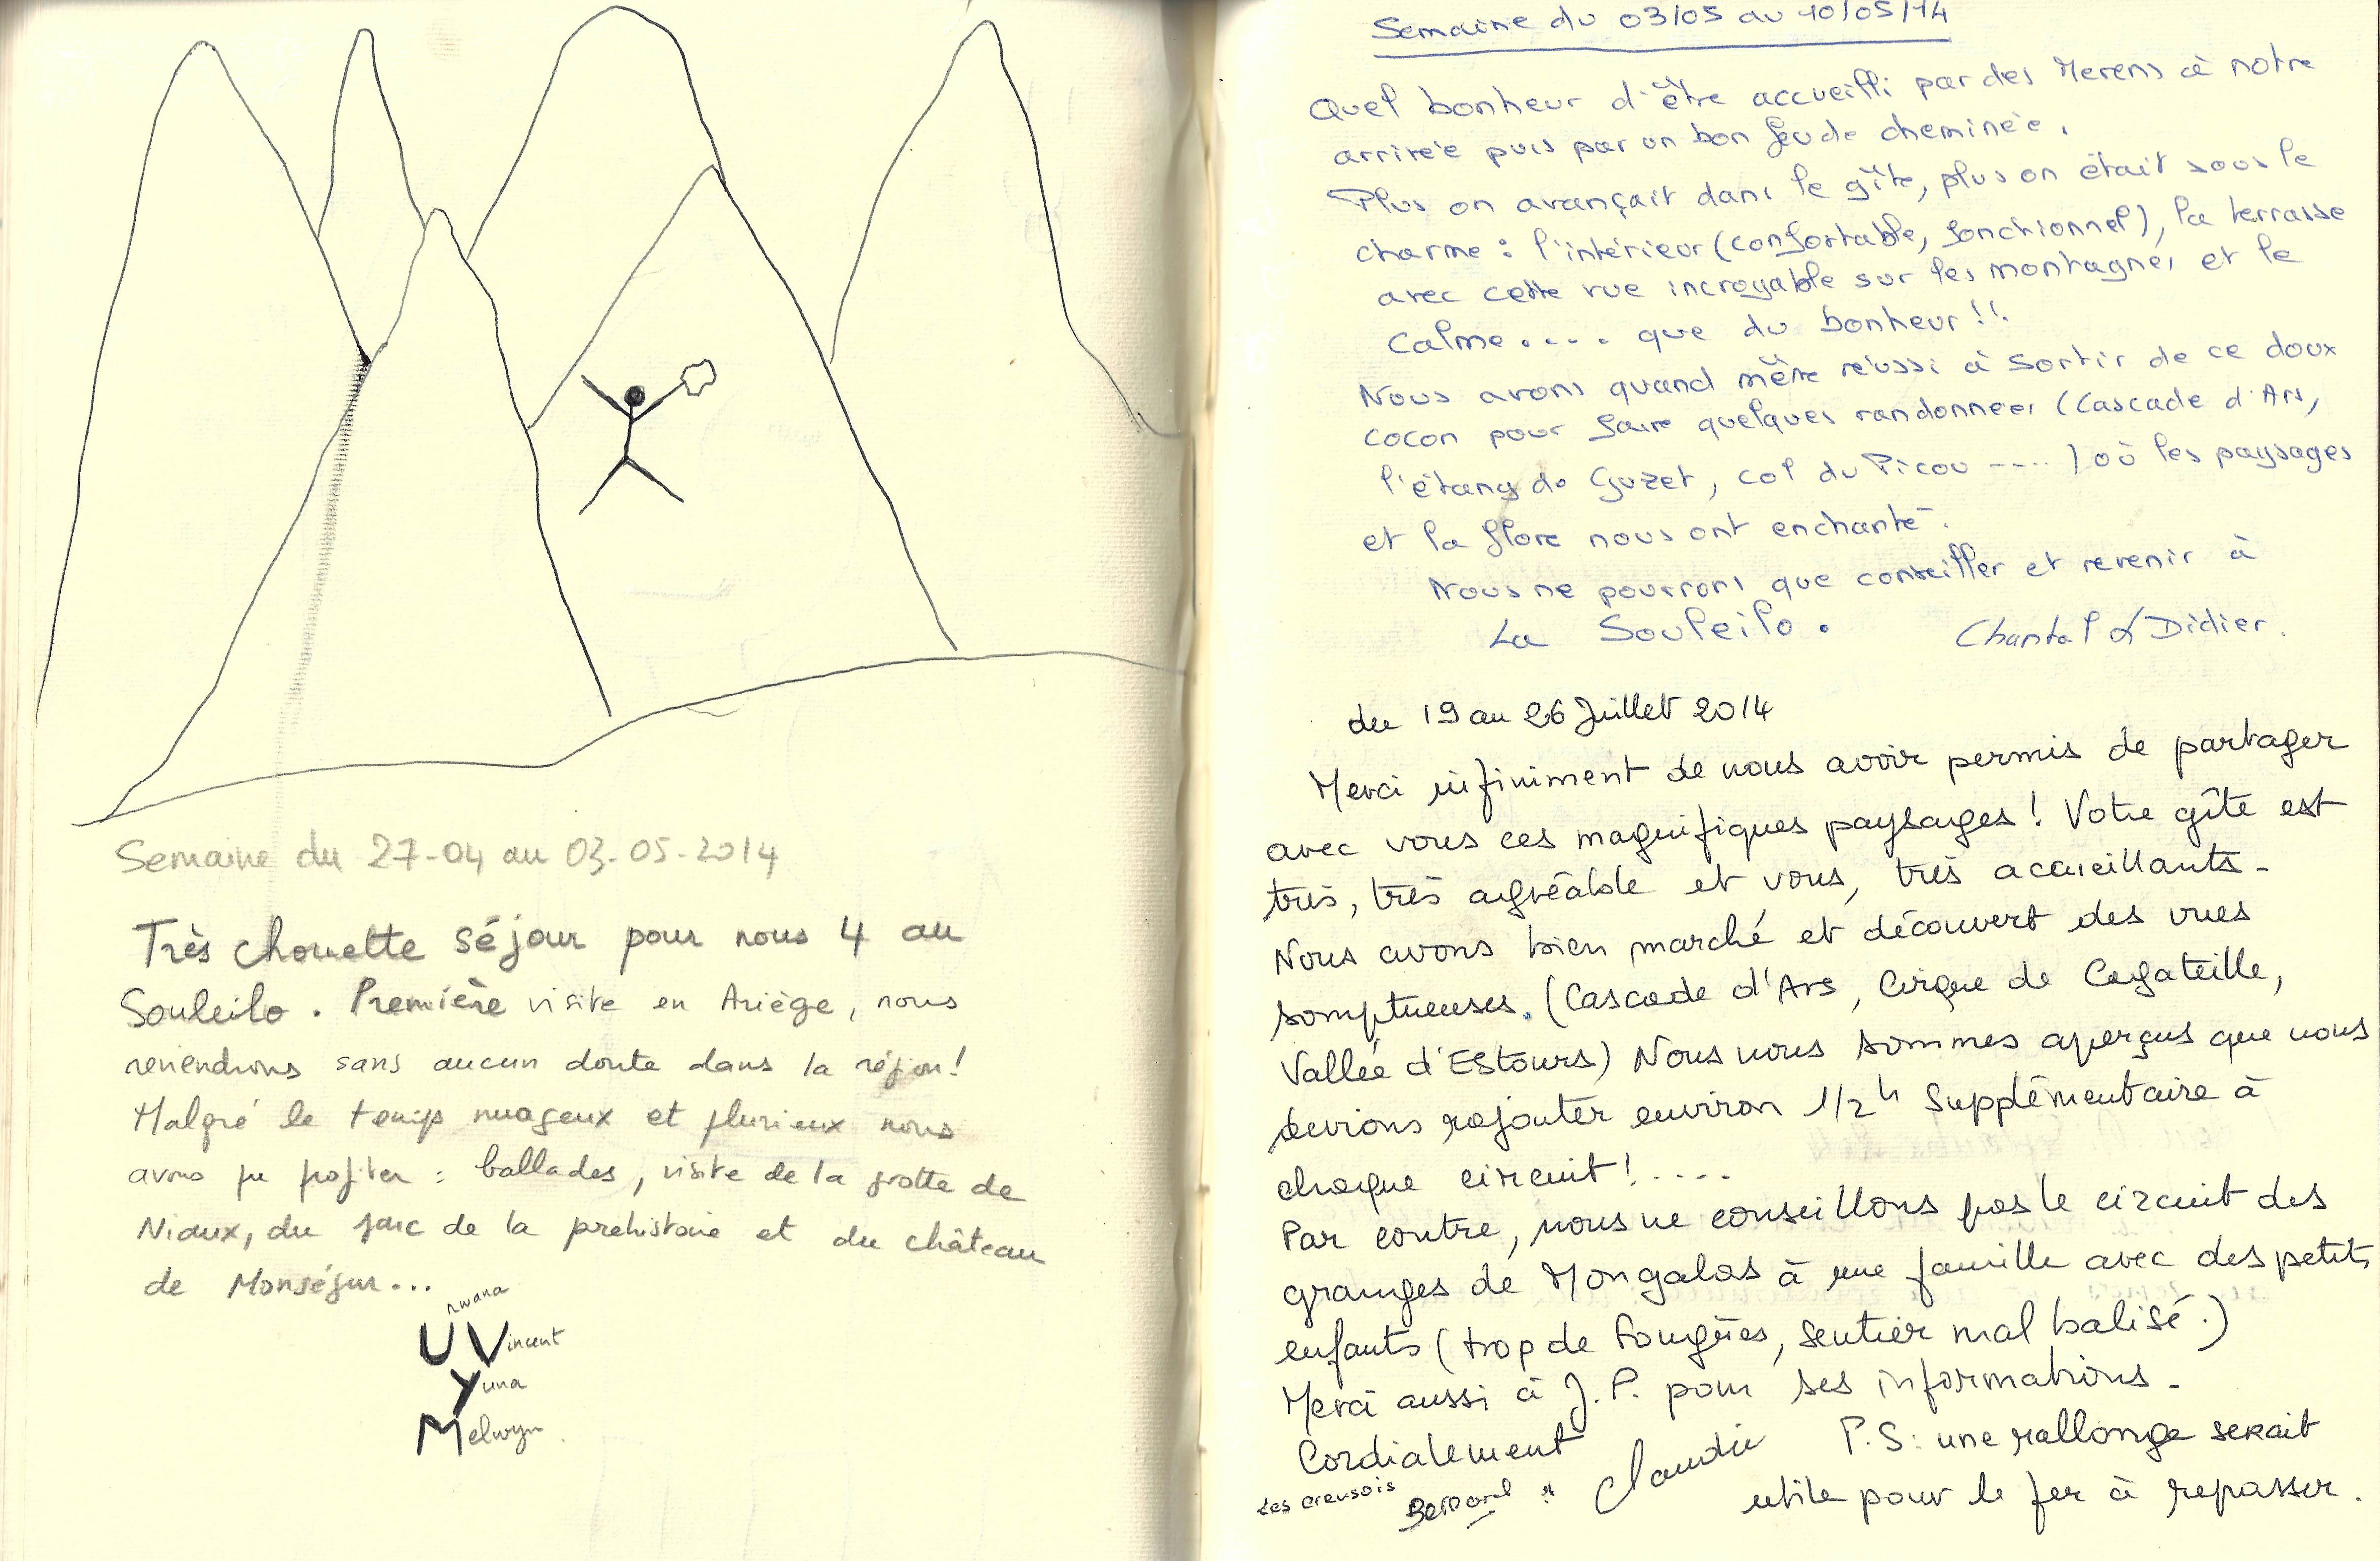 Semaine du 27-04 au 03-05-2014
Très chouette séjour pour nous 4 au
Souleilo. Première visite en Ariège, nous
reviendrons sans aucun doute dans la région!
Malgré le temps nuageux et pluvieux nous
avons pu profiter : ballades, visite de la grotte de
Niaux, du parc de la préhistoire et du château
de Monségur...
Urwana
Vincent
Yuna
Melwyn
Semaine du 03/05 au 10/05/14
Quel bonheur d'être accueilli par des Merens à notre
arrivée puis par un bon feu de cheminée.
Plus on avançait dans le gîte, plus on était sous le
charme : l'intérieur (confortable, fonctionnel), la terrasse
avec cette vue incroyable sur les montagnes et le
calme.... que du bonheur!!
Nous avons quand même réussi à sortir de ce doux
cocon pour faire quelques randonnées (Cascade d'Ars,
l'étang de Guzet, col du Picou ----) où les paysages
et la flore nous ont enchanté.
Nous ne pourrons que conseiller et revenir à
La Souleilo.
Chantal & Didier.
du 19 au 26 Juillet 2014
Merci infiniment de nous avoir permis de partager
avec vous ces magnifiques paysages! Votre gîte est
très, très agréable et vous, très accueillants.
Nous avons bien marché et découvert des vues
somptueuses. (Cascade d'Ars, Cirque de Cagateille,
Vallée d'Estours) Nous nous sommes aperçus que nous
devions rajouter environ 1/2h supplémentaire à
chaque circuit!....
Par contre, nous ne conseillons pas le circuit des
granges de Mongalas à une famille avec des petits
enfants (trop de fougères, sentier mal balisé.)
Merci aussi à J.P. pour ses informations.
Cordialement
les creusois Bernard Claudie
P.S: une rallonge serait
utile pour le fer à repasser.